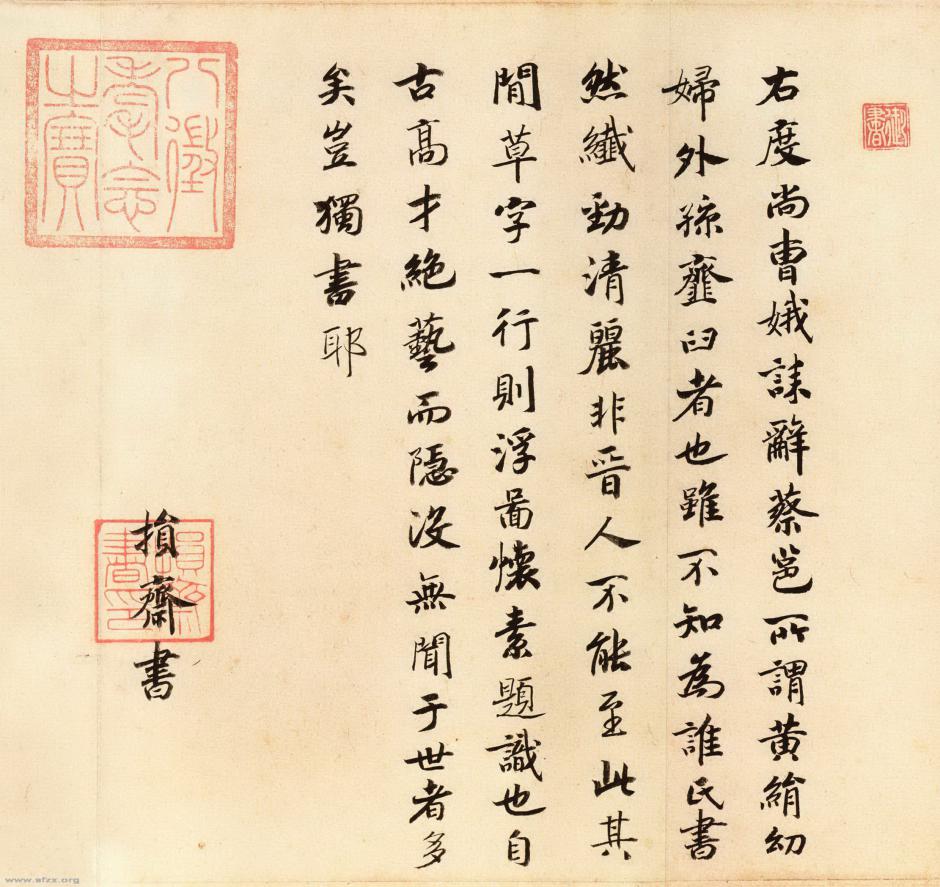 右度尚曹娥誄辭蔡邕所謂黄絹幼
婦外孫虀臼者也雖不知為誰氏書
然纖勁清麗非晉人不能至此其
間草字一行則浮圖懷素題識也自
古高才絶藝而隱没無聞于世者多
矣豈獨書耶
損齋書
御書
損齋書印
www.sfzx.org